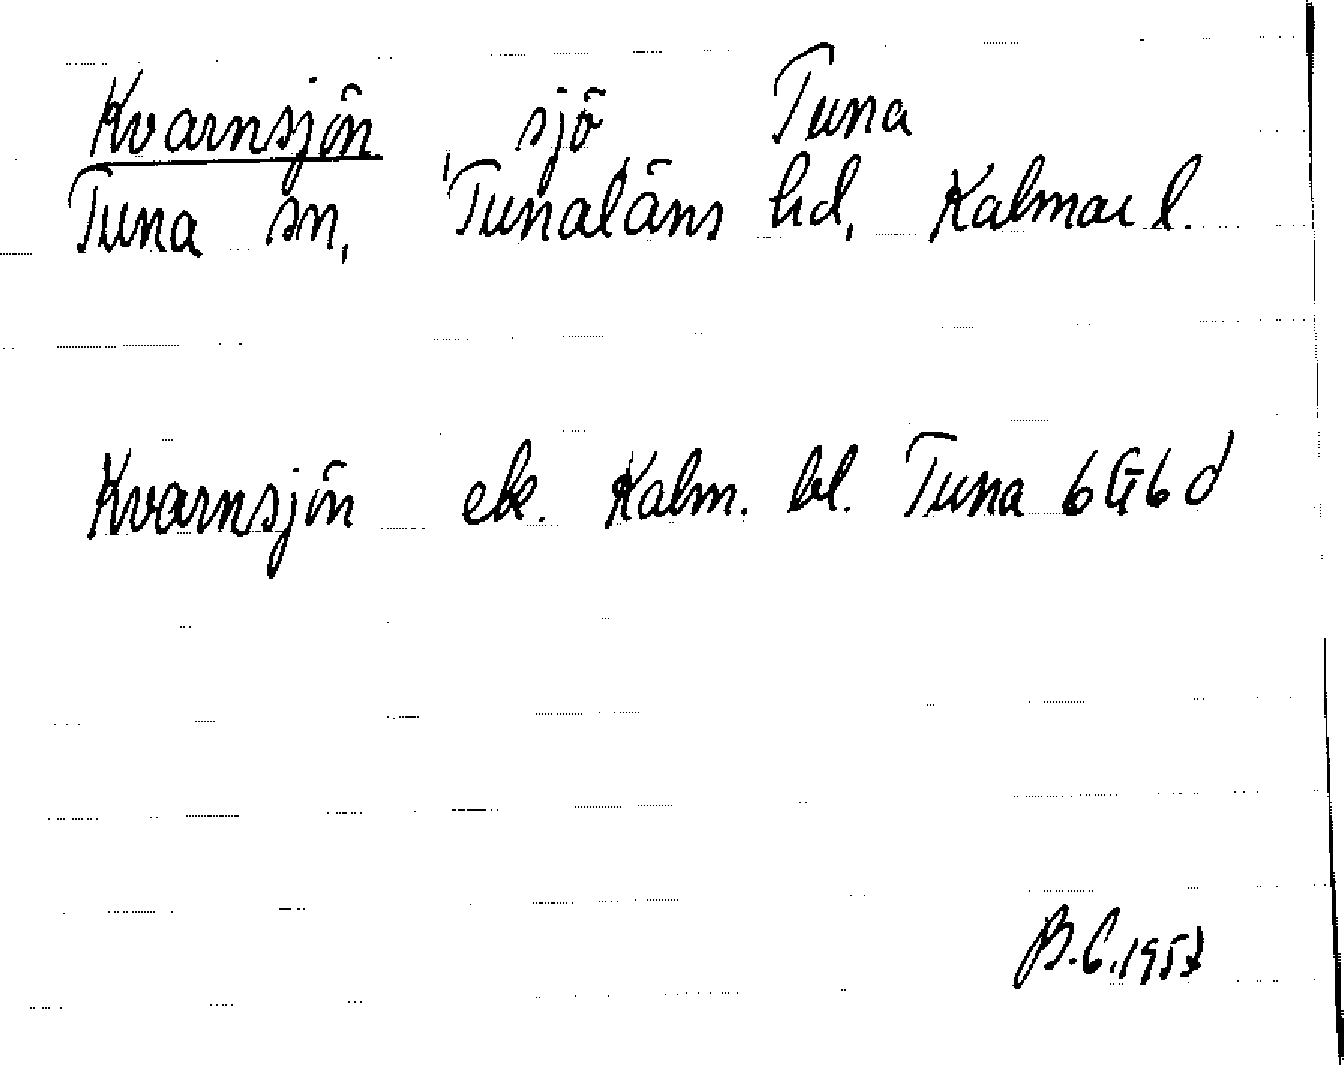 Kvarnsjön sjö Tuna
Tuna sn, Tunaläns hd, Kalmar l.
Kvarnsjön ek. Kalm. bl. Tuna 6G6d
B.C. 1957